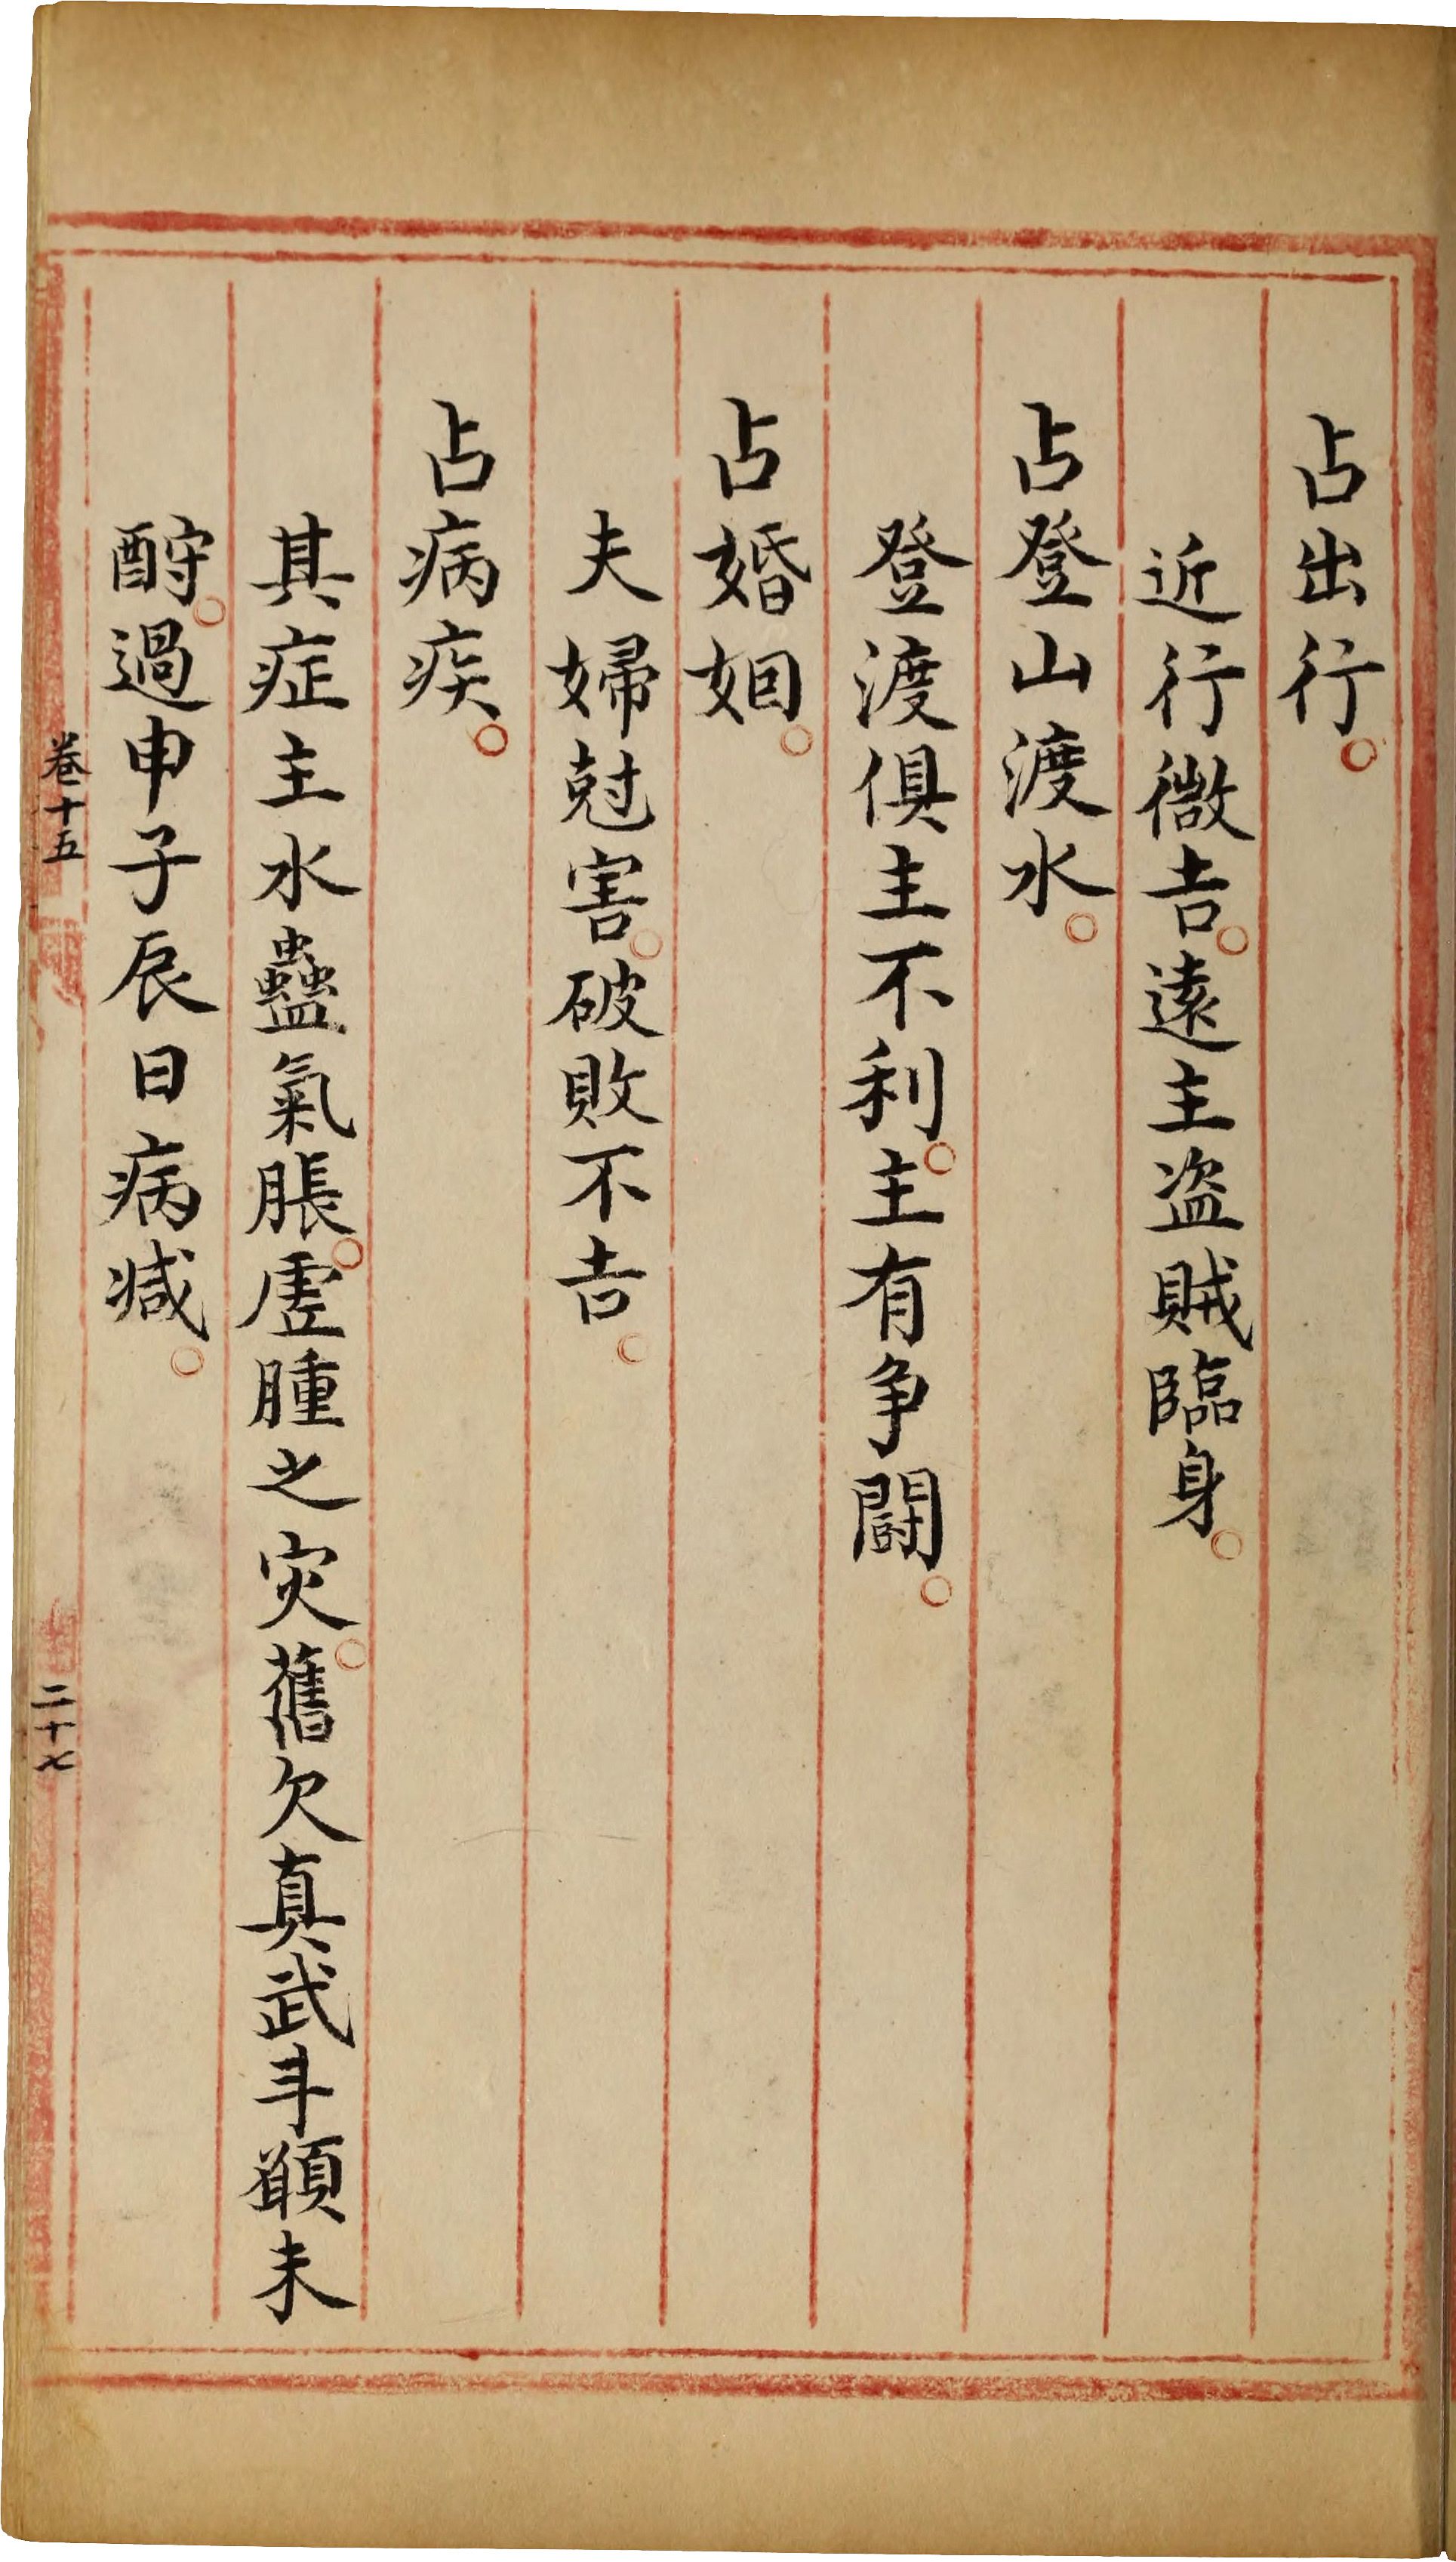 占出行。
近行微吉。遠主盗賊臨身。
占登山渡水。
登渡俱主不利。主有争鬪。
占婚姻。
夫婦尅害。破敗不吉。
占病疾。
其症主水蠱氣脹。虛腫之灾。舊欠真武斗願未
酧。過申子辰日病減。
卷十五
二十七